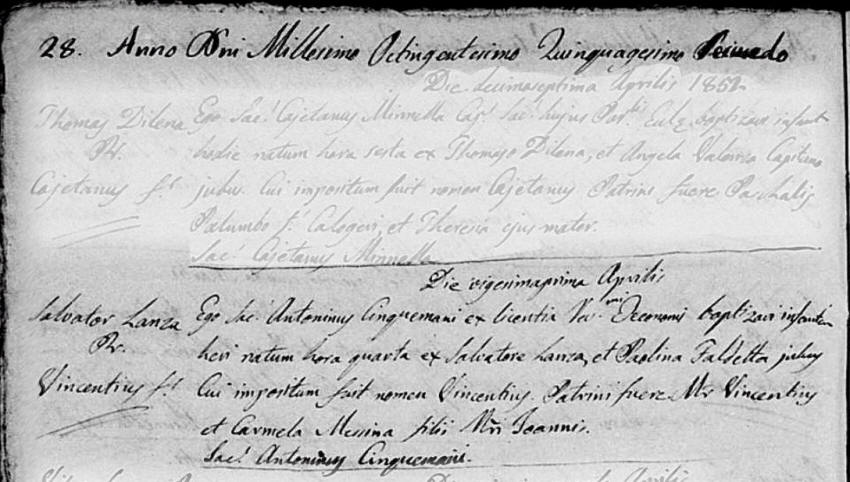 28. Anno Dni Millesimo Octingentesimo Quinquagesimo Secundo
Die decimaseptima Aprilis 1852
Thomas Dilena Ego Sac: Cajetanus Minnella Cap: Sac: hujus Par: baptizavi infant
Pr. hodie natum hora sexta ex Thomaso Dilena, et Angela Capitano
Cajetanus f: jubu: Cui impositum fuit nomen Cajetanus Patrini fuere Paschalis
Palumbo f: Calogeri, et Theresia ejus mater.
Sac: Cajetanus Minnella
Die vigesimaprima Aprilis
Salvator Lanza Ego Sac: Antoninus Cinquemani ex licentia Oeconomi baptizavi infantem
Pr. heri natum hora quarta ex Salvatore Lanza, et Paolina Faldetta jubus
Vincentius f: Cui impositum fuit nomen Vincentius. Patrini fuere Mr Vincentius
et Carmela Messina filii Mri Joannis.
Sac: Antoninus Cinquemani.